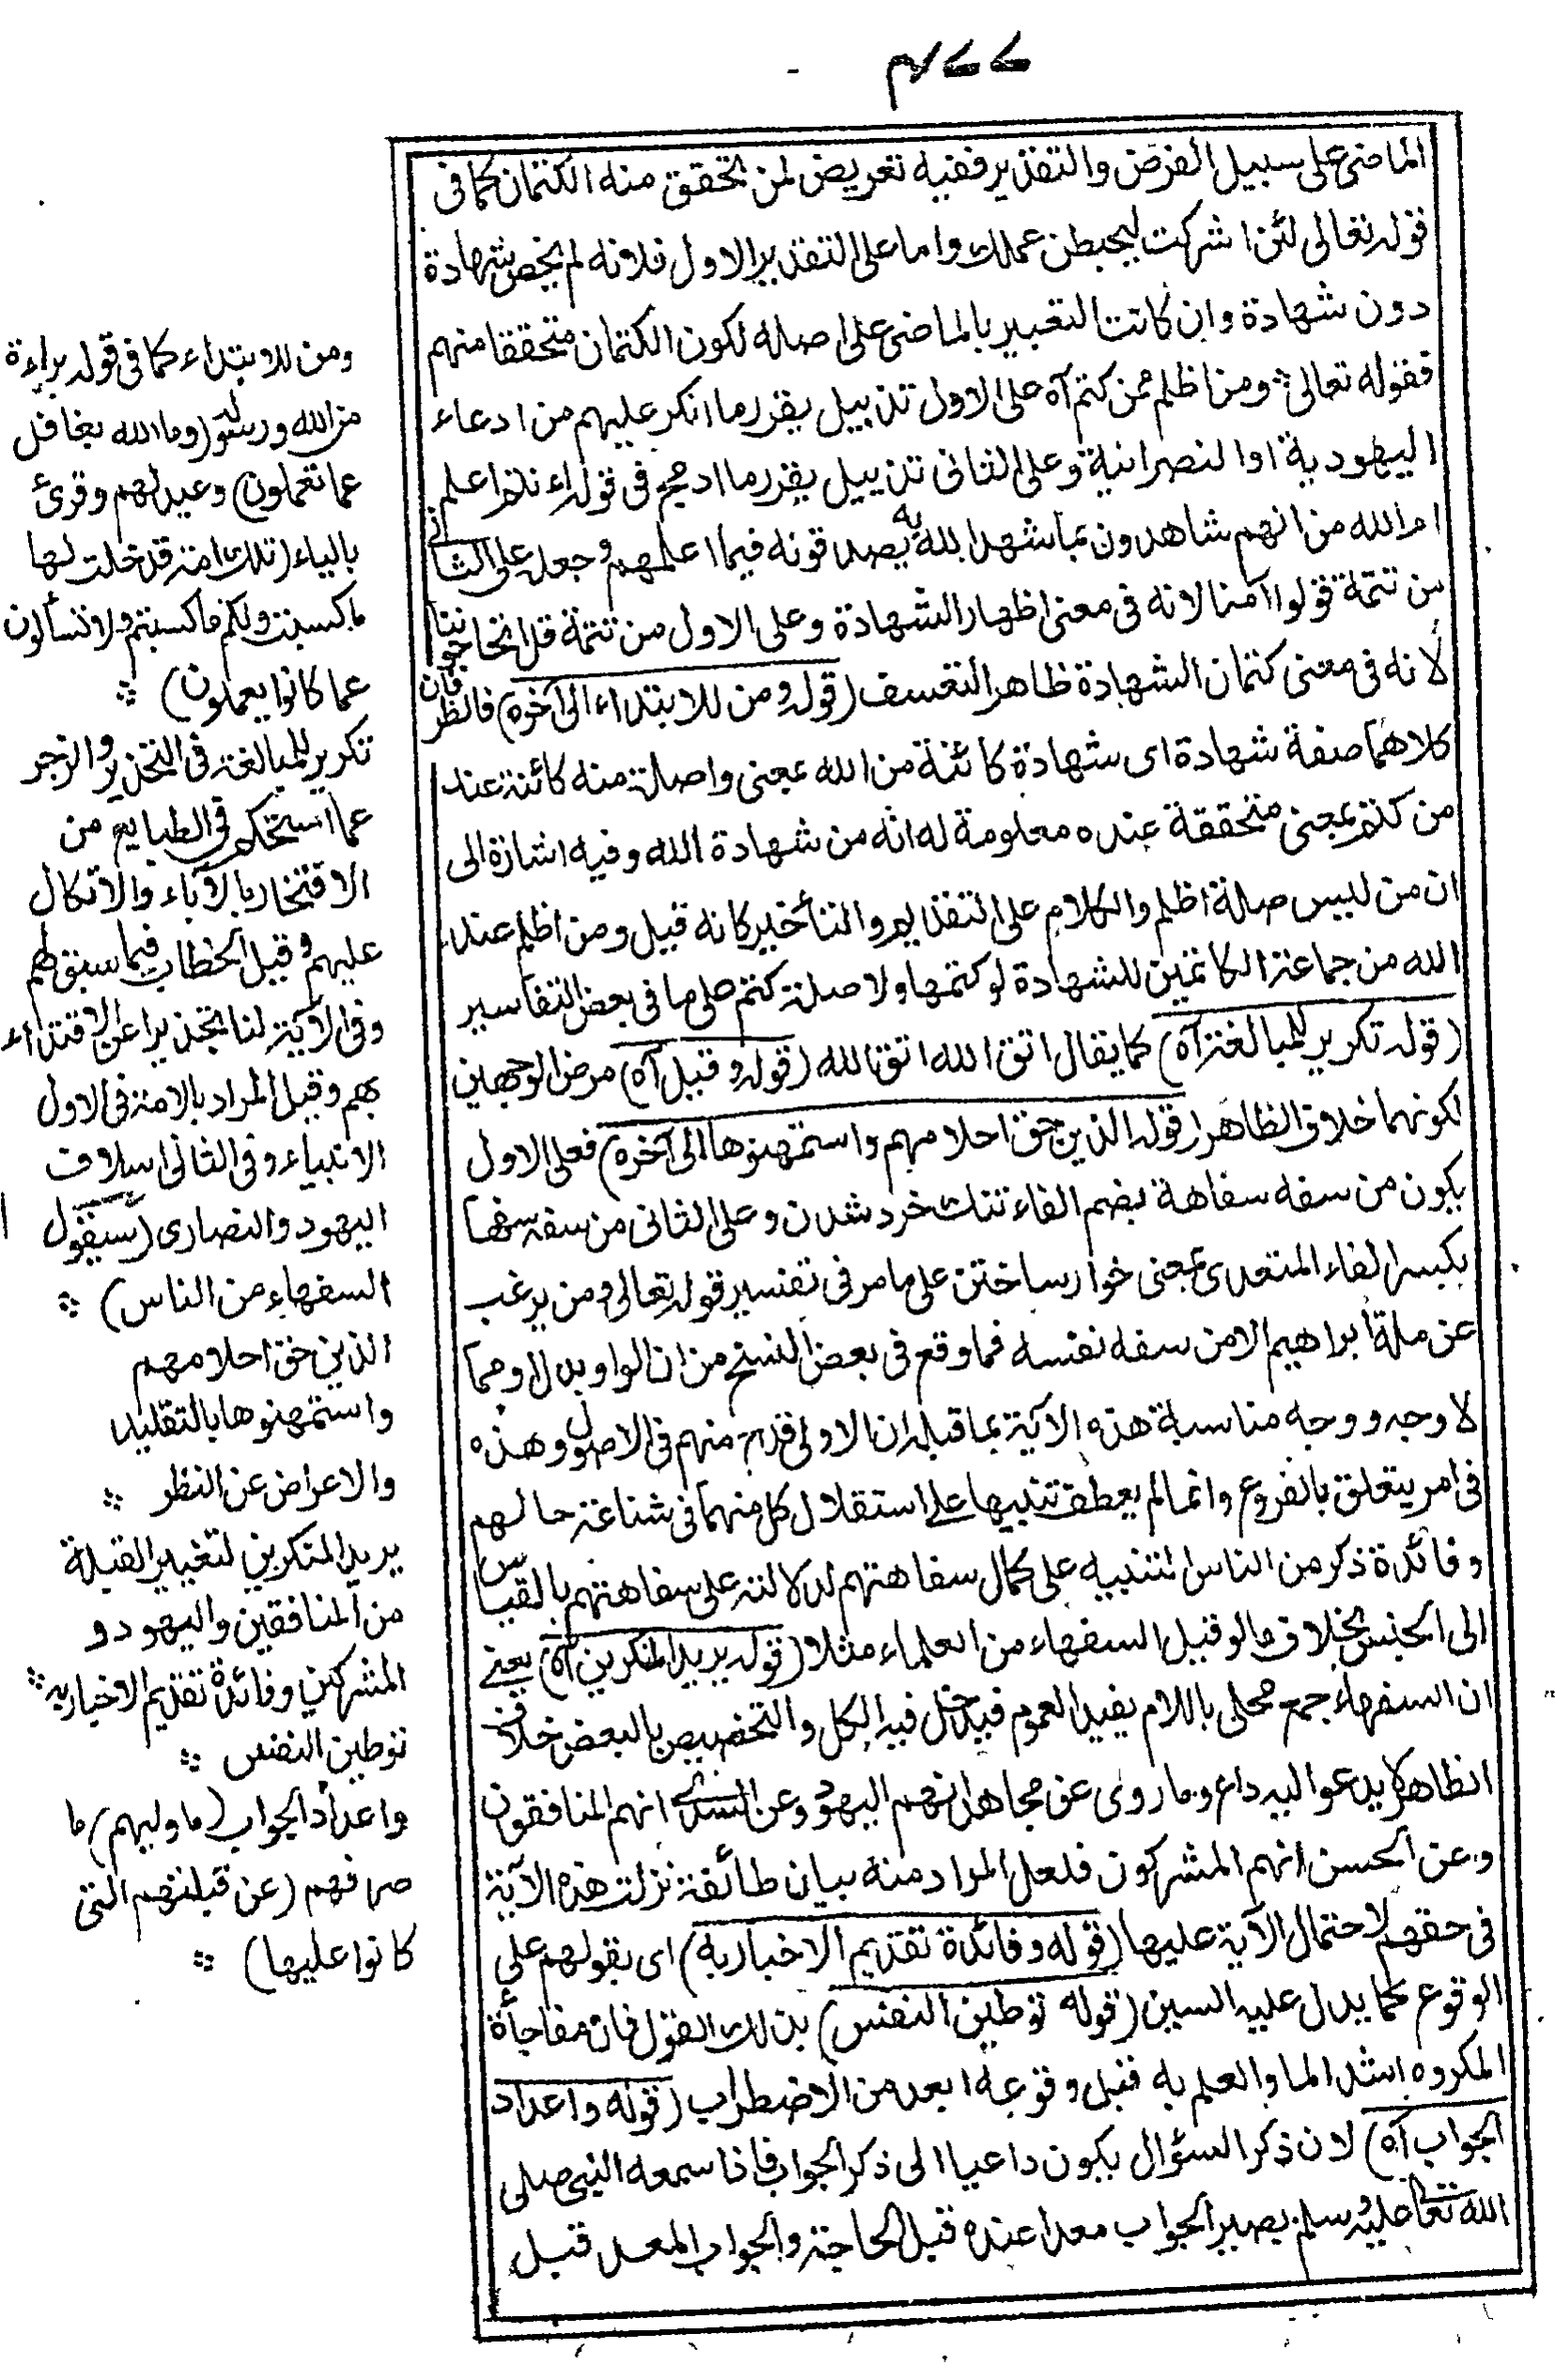 الماضى على سبيل الفرض والتقدير ففيه تعريض لمن تحقق منه الكتمان كما فى
قوله تعالى لئن اشركت ليحبطن عملك واما على التقدير الاول فلانه لم يخص شهادة
دون شهادة وان كانت التعبير بالماضى على اصله لكون الكتمان متحققا منهم
فقوله تعالى ومن اظلم ممن كتم آه على الاول تذييل يقرر ما انكر عليهم من ادعاء
اليهودية او النصرانية وعلى الثانى تذييل يقرر ما ادمج فى قوله ءانتم اعلم
ام الله من انهم شاهدون بما شهد الله به يصدقونه فيما اعلمهم وجعله على الثانى
من تتمة قولوا آمنا لانه فى معنى اظهار الشهادة وعلى الاول من تتمة قل اتحاجوننا
لانه فى معنى كتمان الشهادة ظاهر التعسف (قوله ومن للابتداء الى آخره) فالظرفان
كلاهما صفة شهادة اى شهادة كائنة من الله بمعنى واصلة منه كائنة عند
من كتم بمعنى متحققة عنده معلومة له انه من شهادة الله وفيه اشارة الى
ان من ليس صلة اظلم والكلام على التقديم والتأخير كانه قيل ومن اظلم عند
الله من جماعة الكاتمين للشهادة لو كتمها ولا صلة كتم على ما فى بعض التفاسير
(قوله تكرير للمبالغة آه) كما يقال اتق الله اتق الله (قوله وقيل آه) مرض الوجهين
لكونهما خلاف الظاهر (قوله الذين خق احلامهم واستمهنوها الى آخره) فعلى الاول
يكون من سفه سفاهة بضم الفاء تنك خرد شدن وعلى الثانى من سفه سفها
بكسر الفاء المتعدى بمعنى خوار ساختن على ما مر فى تفسير قوله تعالى ومن يرغب
عن ملة ابراهيم الا من سفه نفسه فما وقع فى بعض النسخ من ان الواو بدل او مما
لا وجه ووجه مناسبة هذه الآية بما قبلها ان الاولى قدح منهم فى الاصول وهذه
فى امر يتعلق بالفروع وانما لم يعطف تنبيها على استقلال كل منهما فى شناعة حالهم
وفائدة ذكر من الناس التنبيه على كمال سفاهتهم لدلالته على سفاهتهم بالقياس
الى الجنس بخلاف ما لو قيل السفهاء من العلماء مثلا (قوله يريد المنكرين آه) يعنى
ان السفهاء جمع محلى باللام يفيد العموم فيدخل فيه الكل والتخصيص بالبعض خلاف
الظاهر لا يدعو اليه داع وما روى عن مجاهد انهم اليهود وعن السدى انهم المنافقون
وعن الحسن انهم المشركون فلعل المراد منه بيان طائفة نزلت هذه الآية
فى حقهم لاحتمال الآية عليها (قوله وفائدة تقديم الاخبار به) اى بقولهم على
الوقوع كما يدل عليه السين (قوله توطين النفس) بذلك القول فان مفاجأة
المكروه اشد الما والعلم به قبل وقوعه ابعد من الاضطراب (قوله واعداد
الجواب آه) لان ذكر السؤال يكون داعيا الى ذكر الجواب فاذا سمعه النبى صلى
الله تعالى عليه وسلم يصير الجواب معدا عنده قبل الحاجة والجواب المعد قبل
ومن للابتداء كما فى قوله براءة
من الله ورسوله (وما الله بغافل
عما تعملون) وعيد لهم وقرئ
بالياء (تلك امة قد خلت لها
ما كسبت ولكم ما كسبتم ولا تسألون
عما كانوا يعملون)
تكرير للمبالغة فى التحذير والزجر
عما استحكم فى الطبايع من
الافتخار بالآباء والاتكال
عليهم وقيل الخطاب فيما سبق لهم
وفى الآية لنا تحذيرا عن الاقتداء
بهم وقيل المراد بالامة فى الاول
الانبياء وفى الثانى اسلاف
اليهود والنصارى (سيقول
السفهاء من الناس)
الذين خق احلامهم
واستمهنوها بالتقليد
والاعراض عن النظر
يريد المنكرين لتغيير القبلة
من المنافقين واليهود و
المشركين وفائدة تقديم الاخبار به
توطين النفس
واعداد الجواب (ما وليهم) ما
صرفهم (عن قبلتهم التى
كانوا عليها)